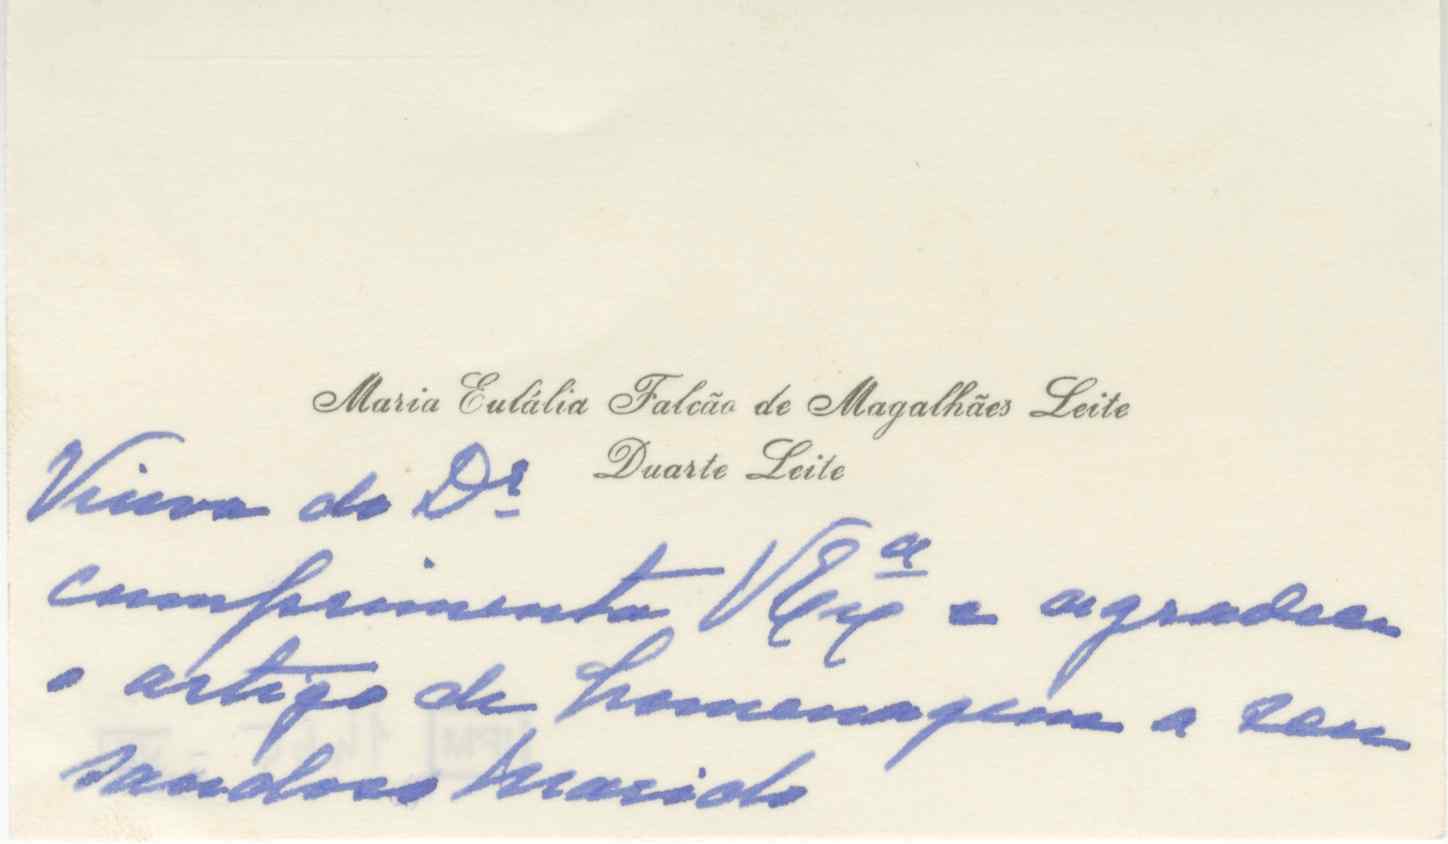 Maria Eulália Falcão de Magalhães Leite
Viuva do Dr Duarte Leite
cumprimenta V Exª e agradece
o artigo de homenagem a seu
saudoso Marido